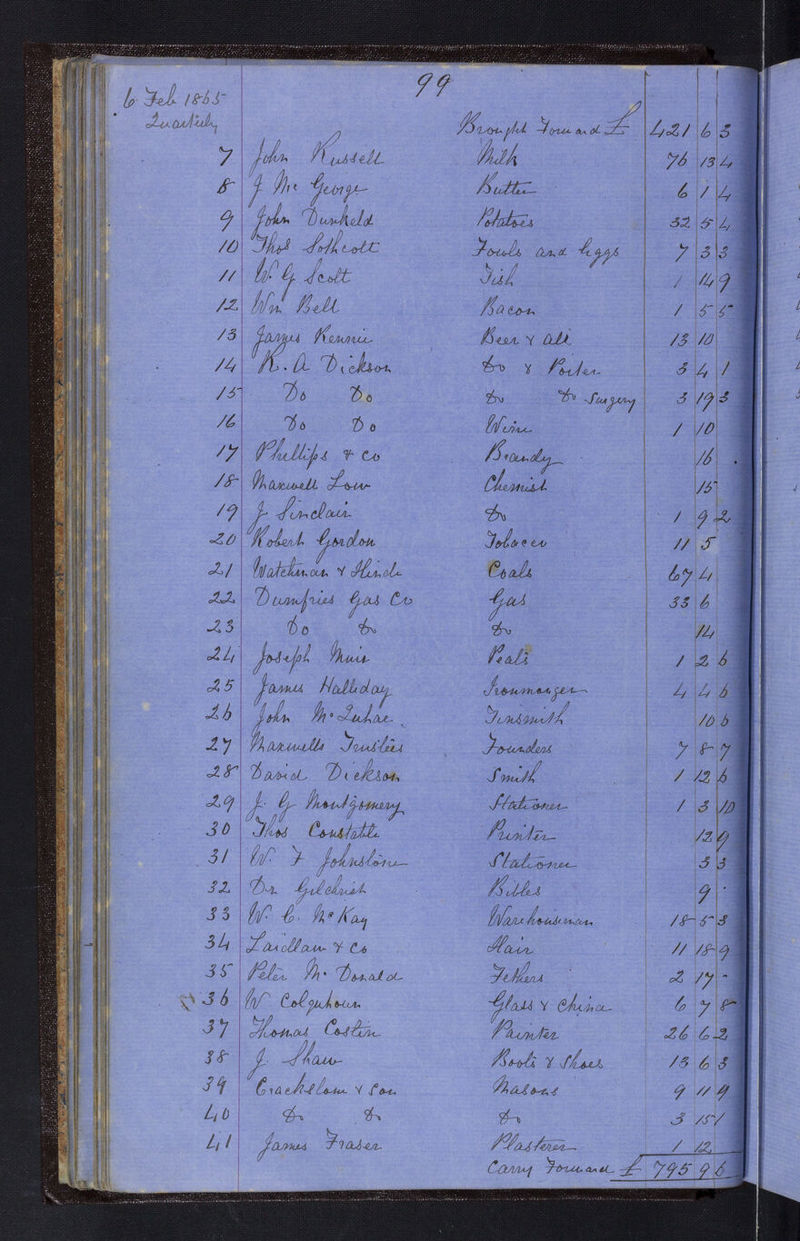 99
6 Feb 1865
Quarterly
Brought Forward £ 421 6 3
7 John Russell Milk 76 13 4
8 J. Mc George Butter 6 1 4
9 John Dunkeld Potatoes 32 5 4
10 Thos Sothcott Fowls and Eggs 7 3 3
11 W. G Scott Fish 1 14 9
12 Wm Bell Bacon 1 5 5
13 James Rennie Beer & Ale 13 10
14 R. A Dickson Do & Porter 3 4 1
15 Do Do Do Do Surgery 3 19 3
16 Do Do Wine 1 10
17 Phillips & Co Brandy 16
18 Maxwell Low Chemist 15
19 J. Sinclair Do 1 9 2
20 Robert Gordon Tobacco 11 5
21 Watchman & Hinde Coals 67 4
22 Dumfries Gas Co Gas 33 6
23 Do Do Do 14
24 Joseph Muir Peats 1 2 6
25 James Halliday Ironmonger 4 4 6
26 John McQuhae Tinsmith 10 6
27 Maxwells Trustees Founders 7 8 7
28 David Dickson Smith 1 12 6
29 J. G Montgomery Stationer 1 3 10
30 Thos Constable Printer 12 9
31 W. F Johnstone Stationer 3 3
32 Dr Gilchrist Bibles 9
33 W. C. McKay Warehouseman 18 5 3
34 Laidlaw & Co Hair 11 18 9
35 Peter McDonald Fethers 2 17 -
36 W Colquhoun Glass & China 6 7 8
37 Thomas Costin Painter 26 6 2
38 J. Shaw Boots & Shoes 13 6 3
39 Crackslow & Son Masons 9 11 9
40 Do Do Do 3 15 1
41 James Fraser Plasterer 1 12
Carry Forward £ 795 9 6